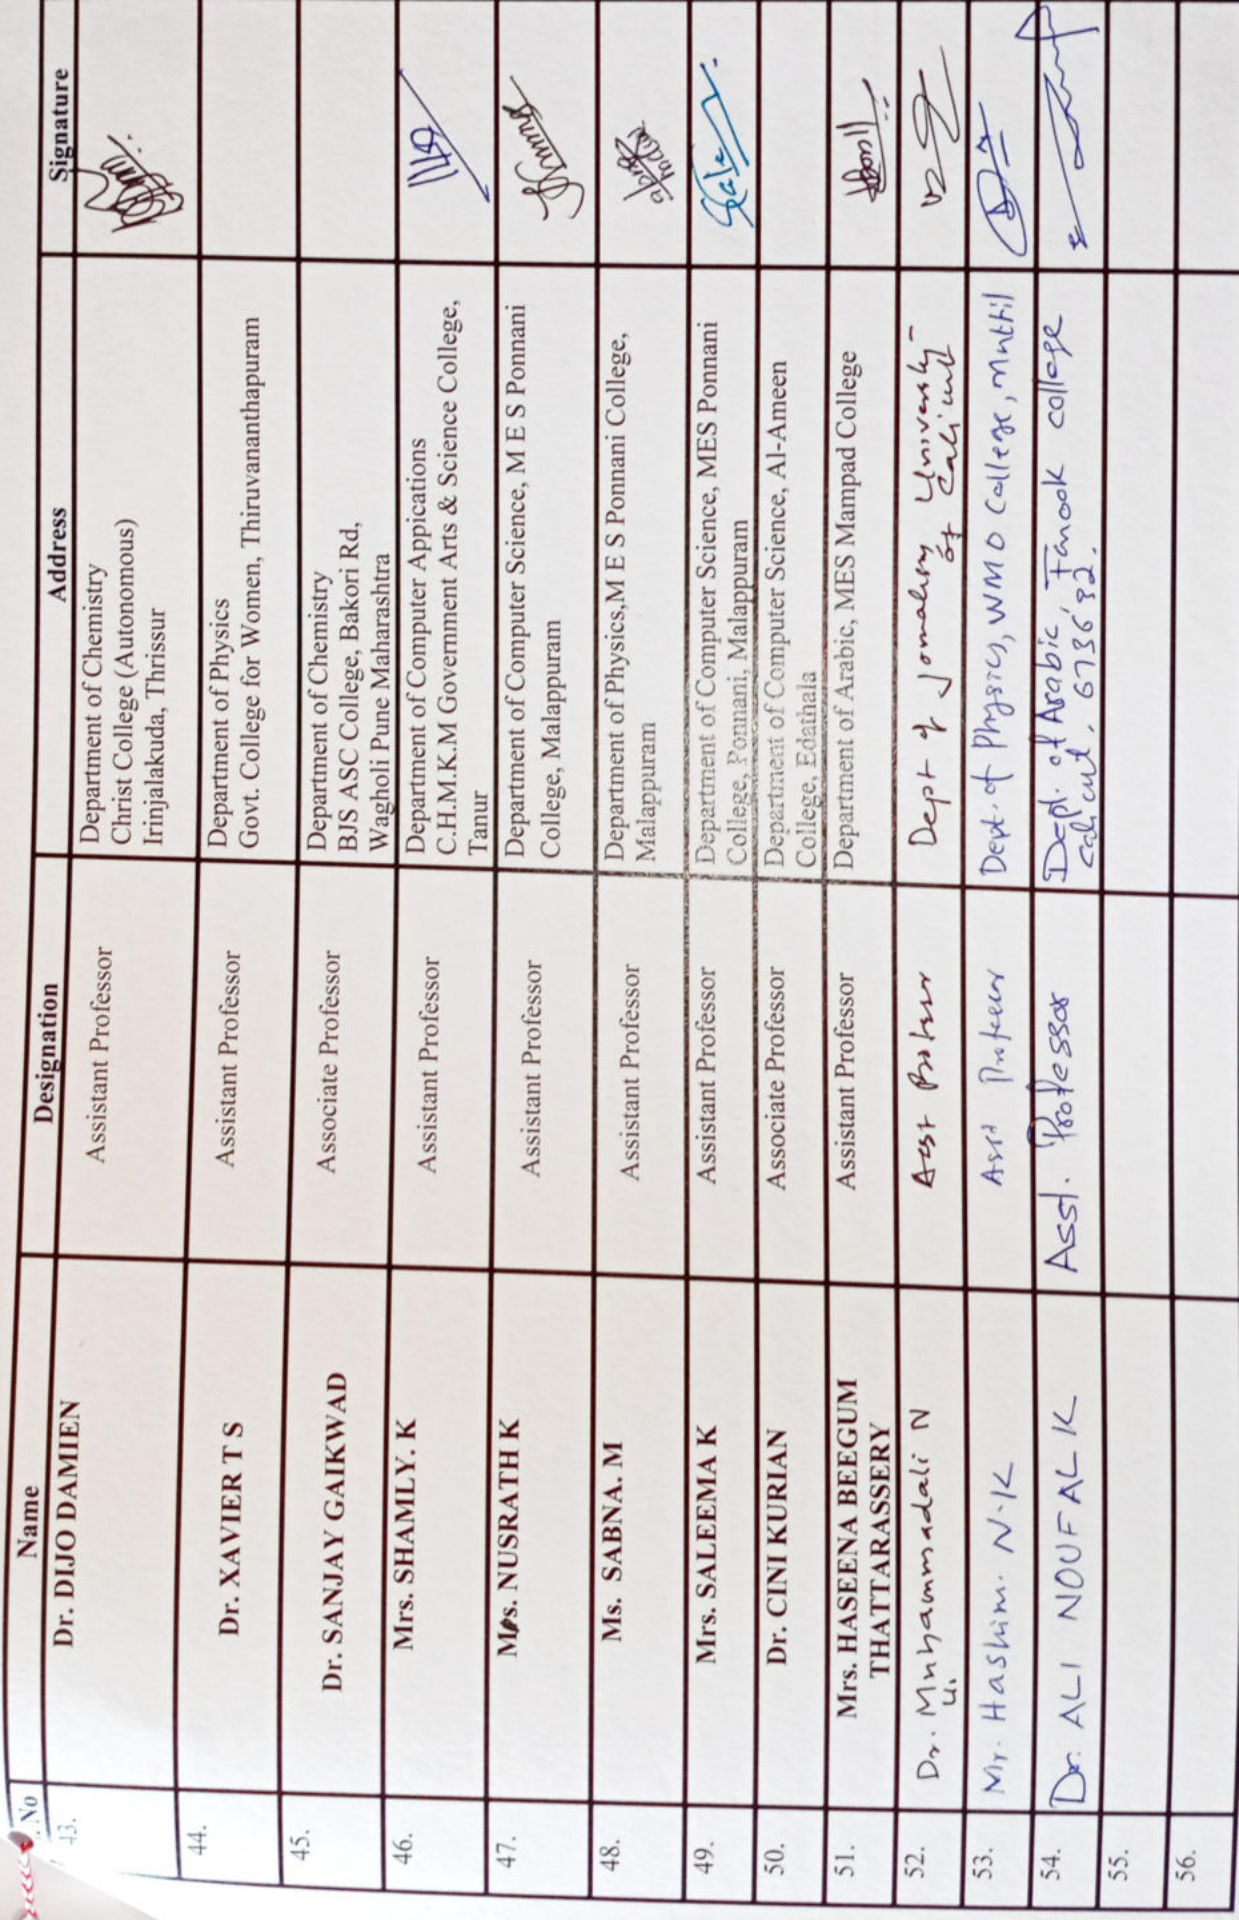 . No
Name
Designation
Address
Signature
43.
Dr. DIJO DAMIEN
Assistant Professor
Department of Chemistry
Christ College (Autonomous)
Irinjalakuda, Thrissur
44.
Dr. XAVIER T S
Assistant Professor
Department of Physics
Govt. College for Women, Thiruvananthapuram
45.
Dr. SANJAY GAIKWAD
Associate Professor
Department of Chemistry
BJS ASC College, Bakori Rd,
Wagholi Pune Maharashtra
46.
Mrs. SHAMLY. K
Assistant Professor
Department of Computer Appications
C.H.M.K.M Government Arts & Science College,
Tanur
47.
Ms. NUSRATH K
Assistant Professor
Department of Computer Science, M E S Ponnani
College, Malappuram
48.
Ms. SABNA. M
Assistant Professor
Department of Physics,M E S Ponnani College,
Malappuram
49.
Mrs. SALEEMA K
Assistant Professor
Department of Computer Science, MES Ponnani
College, Ponnani, Malappuram
50.
Dr. CINI KURIAN
Associate Professor
Department of Computer Science, Al-Ameen
College, Edathala
51.
Mrs. HASEENA BEEGUM
THATTARASSERY
Assistant Professor
Department of Arabic, MES Mampad College
52.
Dr. Muhammadali N
Asst Professor
Dept of Journalism, University
of Calicut
53.
Mr. Hashim. N.K
Asst Professor
Dept. of Physics, WMO College, Muttil
54.
Dr. ALI NOUFAL K
Asst. Professor
Dept. of Arabic, Farook college
calicut, 673632.
55.
56.